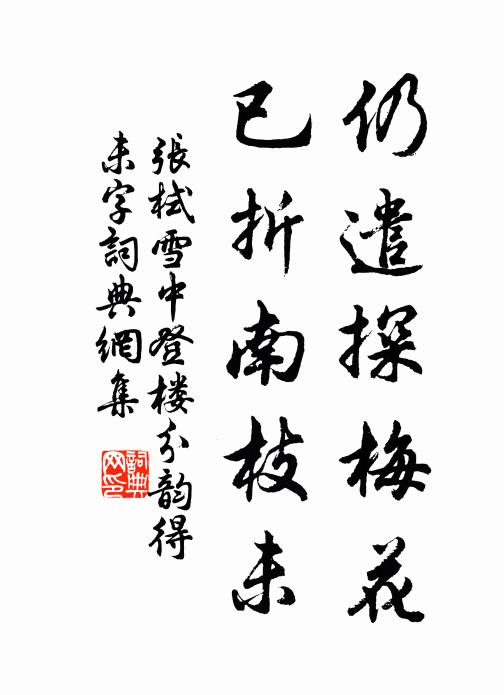 仍遣探梅花
已折南枝未
張栻雪中登楼分韵得
未字詞典網集
詞典网印